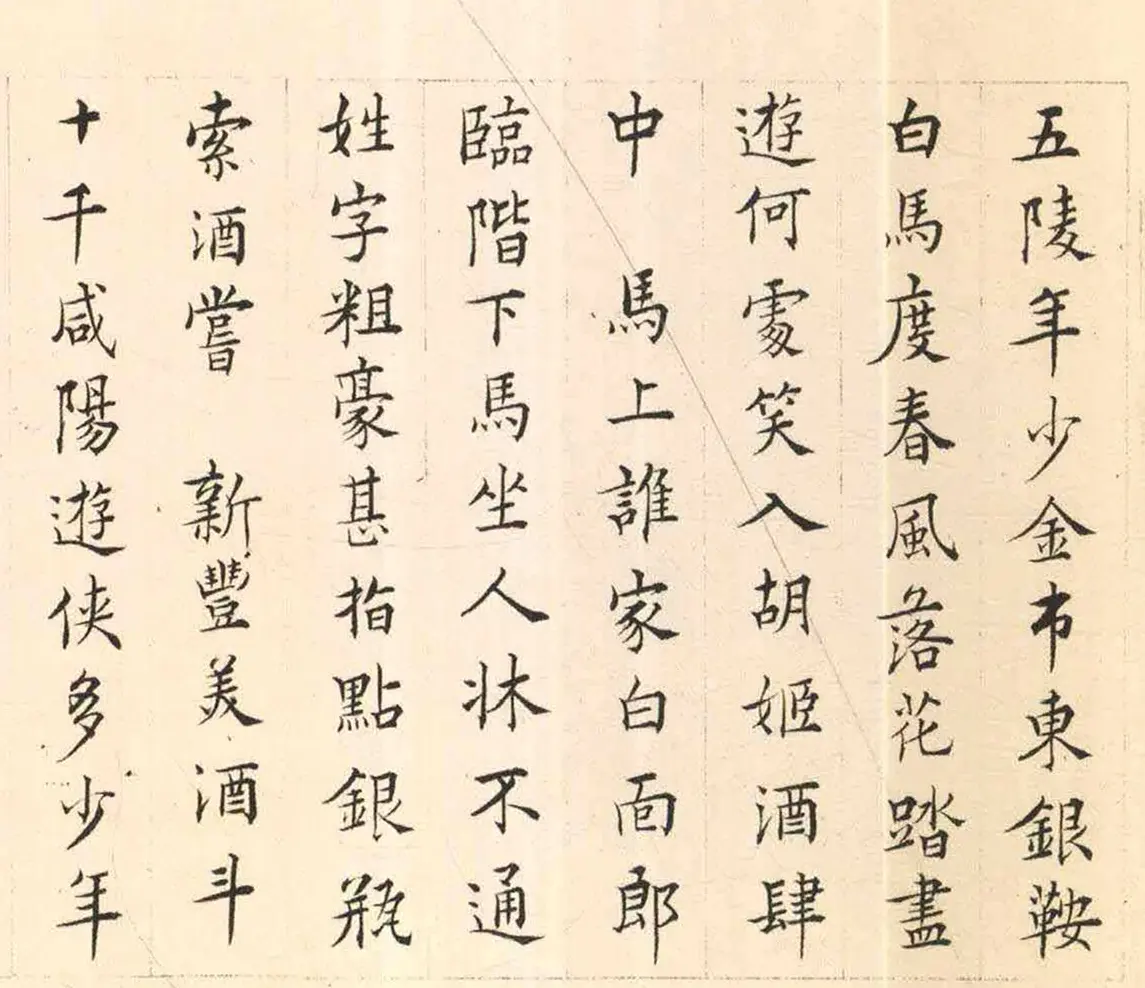 五陵年少金市東銀鞍
白馬度春風落花踏盡
遊何處笑入胡姬酒肆
中 馬上誰家白面郎
臨階下馬坐人牀不通
姓字粗豪甚指點銀瓶
索酒嘗 新豐美酒斗
十千咸陽遊俠多少年